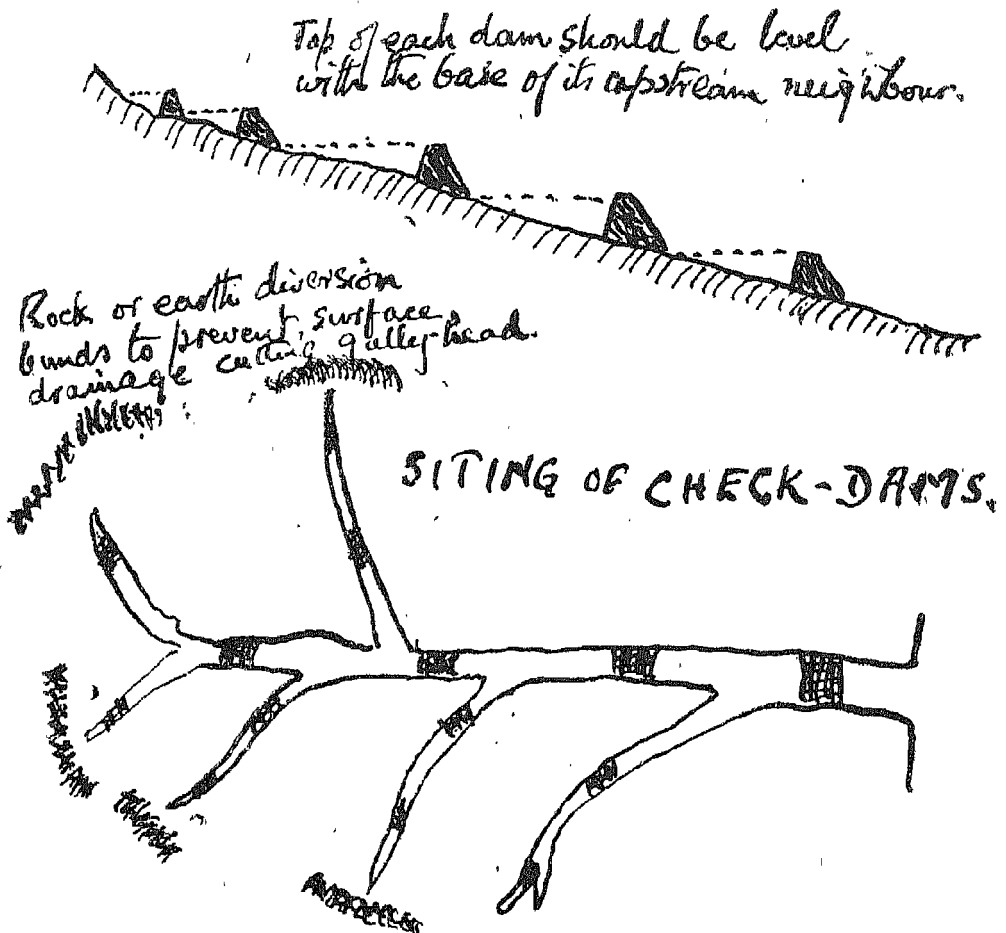 Top of each dam should be level
with the base of its upstream neighbour.
Rock or earth diversion
bunds to prevent surface
drainage cutting gulley-head.
SITING OF CHECK-DAMS.